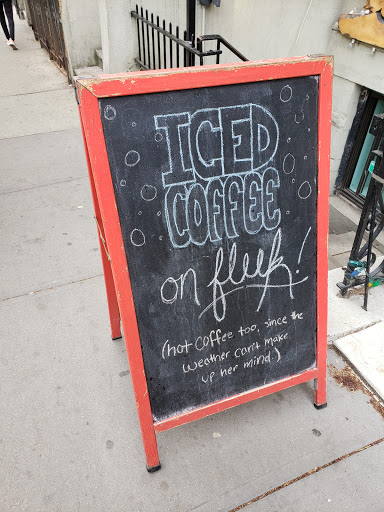 ICED
COFFEE
on fleek!
(hot coffee too, since the
weather can't make
up her mind.)